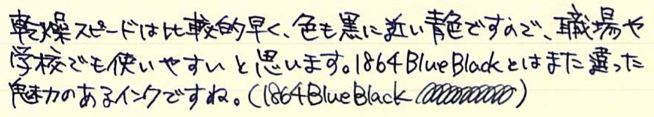 乾燥スピードは比較的早く、色も黒に近い青色ですので、職場や
学校でも使いやすいと思います。1864BlueBlackとはまた違った
魅力のあるインクですね。(1864BlueBlack )